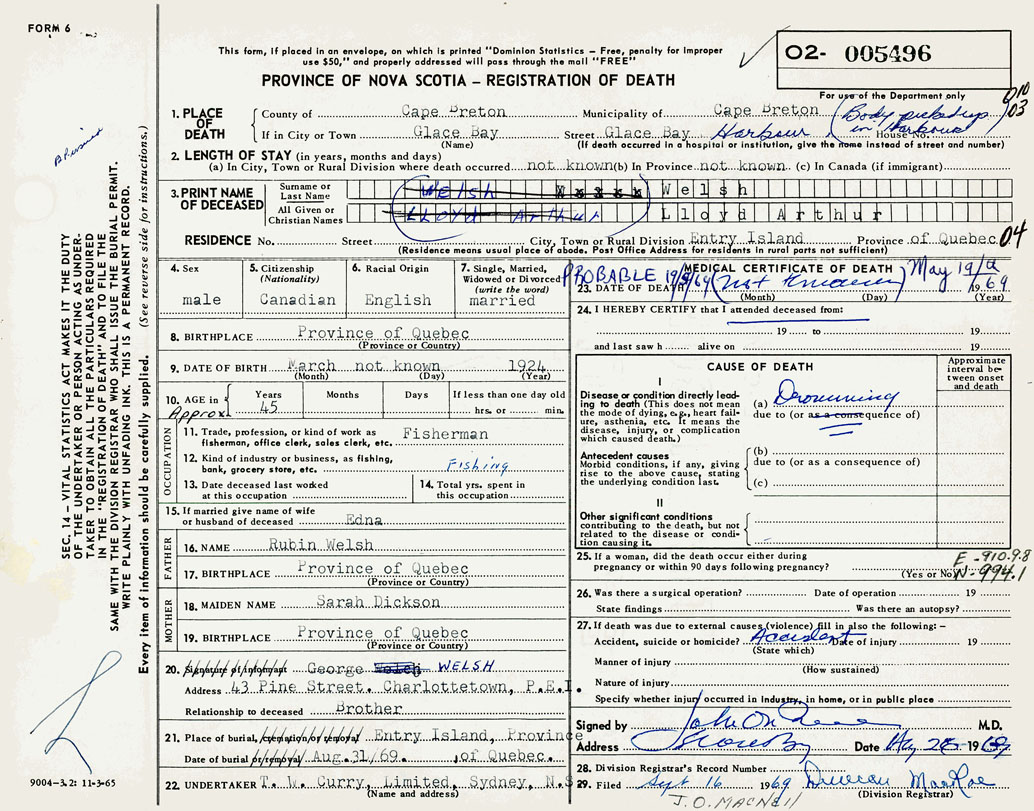 FORM 6
This form, if placed in an envelope, on which is printed "Dominion Statistics – Free, penalty for improper
use $50," and properly addressed will pass through the mail "FREE"
PROVINCE OF NOVA SCOTIA – REGISTRATION OF DEATH
O2- 005496
For use of the Department only
1. PLACE OF DEATH
County of Cape Breton Municipality of Cape Breton
(Body picked up in Harbour)
If in City or Town Glace Bay Street Glace Bay Harbour House No.
(Name) (If death occurred in a hospital or institution, give the name instead of street and number)
2. LENGTH OF STAY (in years, months and days)
(a) In City, Town or Rural Division where death occurred not known (b) In Province not known (c) In Canada (if immigrant)
3. PRINT NAME OF DECEASED
Surname or Last Name WELSH Welsh
All Given or Christian Names LLOYD ARTHUR Lloyd Arthur
RESIDENCE No. Street City, Town or Rural Division Entry Island Province of Quebec 04
(Residence means usual place of abode. Post Office Address for residents in rural parts not sufficient)
4. Sex
male
5. Citizenship
(Nationality)
Canadian
6. Racial Origin
English
7. Single, Married, Widowed or Divorced
(write the word)
married
8. BIRTHPLACE Province of Quebec
(Province or Country)
9. DATE OF BIRTH March not known 1924
(Month) (Day) (Year)
10. AGE in Years Months Days If less than one day old
Approx. 45 hrs. or min.
OCCUPATION
11. Trade, profession, or kind of work as
fisherman, office clerk, sales clerk, etc. Fisherman
12. Kind of industry or business, as fishing,
bank, grocery store, etc. Fishing
13. Date deceased last worked
at this occupation
14. Total yrs. spent in
this occupation
15. If married give name of wife
or husband of deceased Edna
FATHER
16. NAME Rubin Welsh
17. BIRTHPLACE Province of Quebec
(Province or Country)
MOTHER
18. MAIDEN NAME Sarah Dickson
19. BIRTHPLACE Province of Quebec
(Province or Country)
20. Signature of informant George Welch WELSH
Address 43 Pine Street. Charlottetown, P.E.I.
Relationship to deceased Brother
21. Place of burial, cremation or removal Entry Island, Province
Date of burial or removal Aug. 31/69. , of Quebec.
22. UNDERTAKER T. W. Curry, Limited, Sydney, N.S
(Name and address)
MEDICAL CERTIFICATE OF DEATH
PROBABLE 19/5/69 (not known) May 19/a
23. DATE OF DEATH 1969
(Month) (Day) (Year)
24. I HEREBY CERTIFY that I attended deceased from:
19 to 19
and last saw h alive on 19
CAUSE OF DEATH
Approximate interval between onset and death
I
Disease or condition directly leading to death (This does not mean the mode of dying, e.g., heart failure, asthenia, etc. It means the disease, injury, or complication which caused death.)
(a) Drowning
due to (or as a consequence of)
Antecedent causes
Morbid conditions, if any, giving rise to the above cause, stating the underlying condition last.
(b)
due to (or as a consequence of)
(c)
II
Other significant conditions
contributing to the death, but not related to the disease or condition causing it.
25. If a woman, did the death occur either during
pregnancy or within 90 days following pregnancy?
(Yes or No)
E - 910.9.8
N - 994.1
26. Was there a surgical operation? Date of operation 19
State findings Was there an autopsy?
27. If death was due to external causes (violence) fill in also the following: –
Accident, suicide or homicide? Accident Date of injury 19
(State which)
Manner of injury
(How sustained)
Nature of injury
Specify whether injury occurred in Industry, in home, or in public place
Signed by M.D.
Address Date 1969
28. Division Registrar's Record Number
29. Filed Sept 16 1969 Duncan MacRae
(Division Registrar)
J. O. MACNEIL
SEC. 14 – VITAL STATISTICS ACT MAKES IT THE DUTY
OF THE UNDERTAKER OR PERSON ACTING AS UNDER-
TAKER TO OBTAIN ALL THE PARTICULARS REQUIRED
IN THE "REGISTRATION OF DEATH" AND TO FILE THE
SAME WITH THE DIVISION REGISTRAR WHO SHALL ISSUE THE BURIAL PERMIT.
WRITE PLAINLY WITH UNFADING INK. THIS IS A PERMANENT RECORD.
Every item of information should be carefully supplied. (See reverse side for instructions.)
9004-3.2: 11-3-65